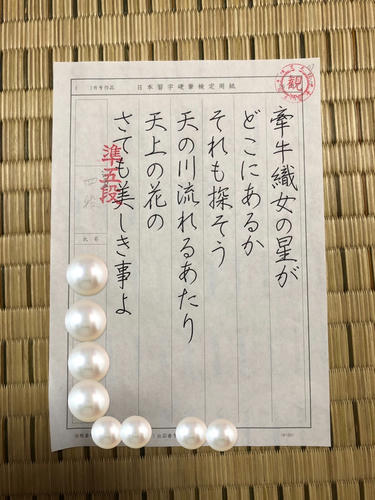 日本習字硬筆検定用紙
月号作品
観
牽牛織女の星が
どこにあるか
それも探そう
天の川流れるあたり
天上の花の
さても美しき事よ
準五段
氏名